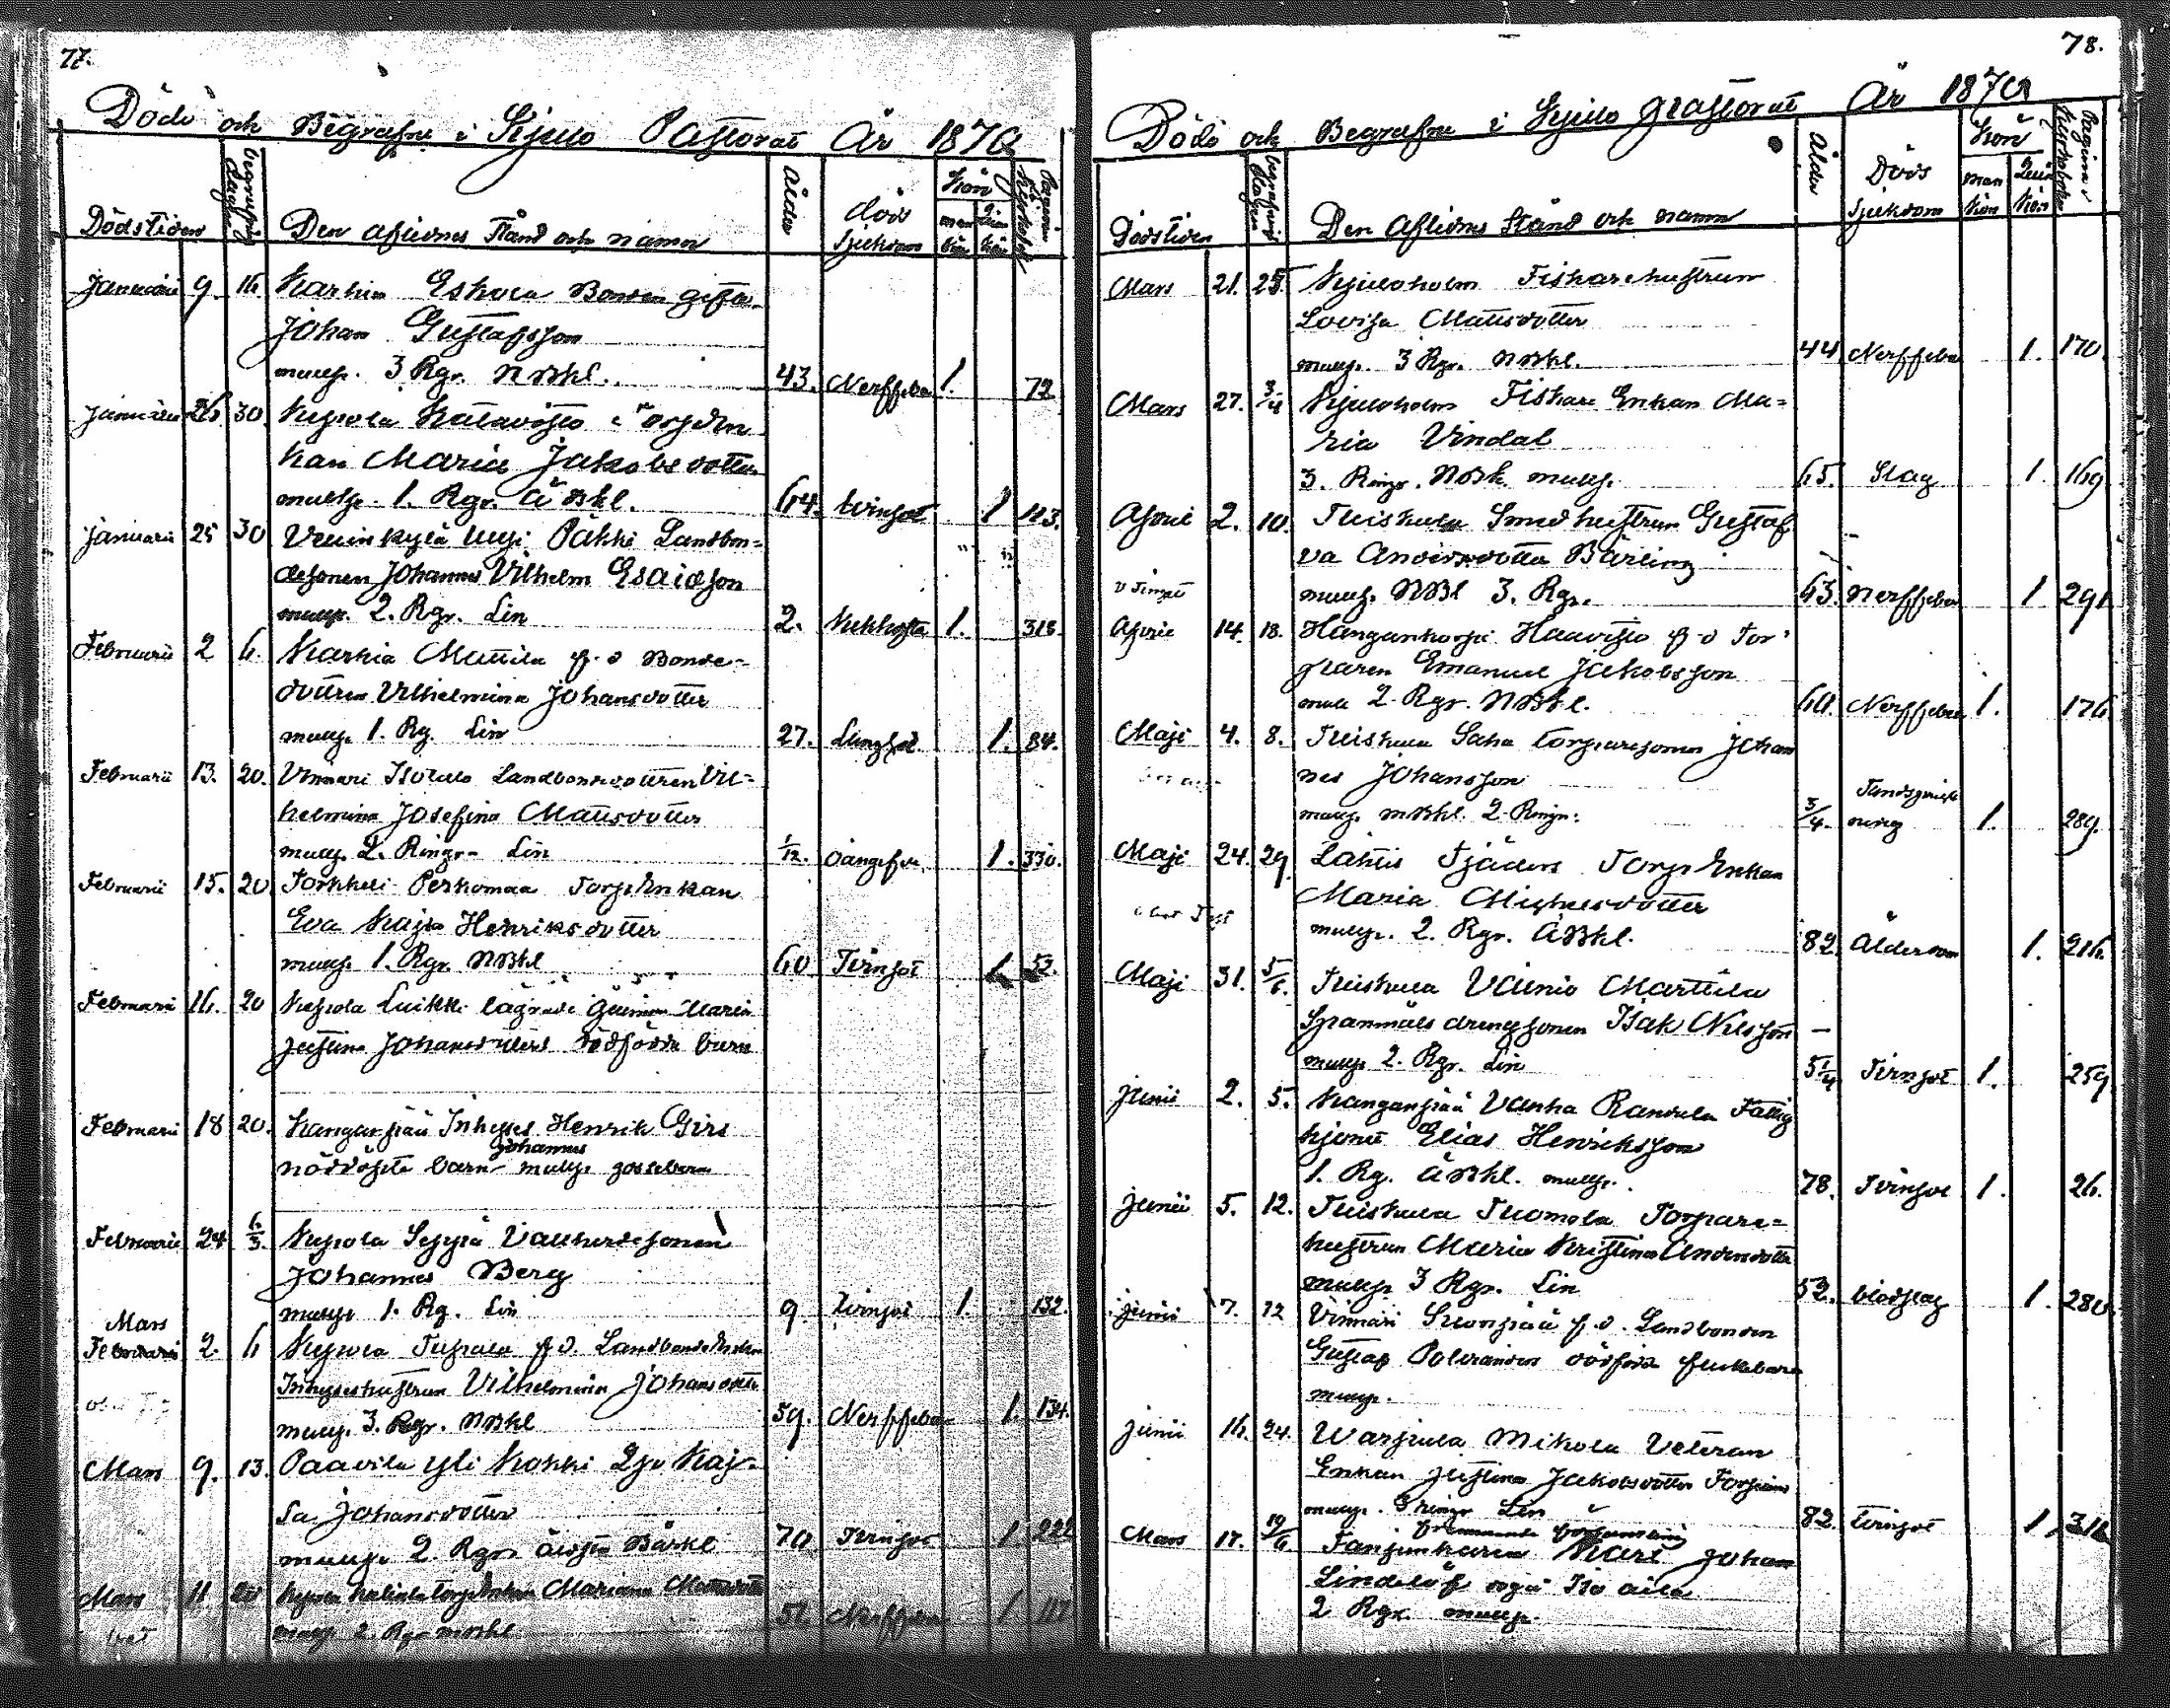 77.
Döde och Begrafne i Kjulo Pastorat År 1870
Dödstiden
Begrafnings dagen
Den aflidnes Stånd och namn
Ålder
Döds sjukdom
Kön
man kön
Quin kön
Pagina i Kyrkoboken
Januarii 9. 16. Karhia Eskola Bonden gifta
Johan Gustafsson
mullp. 3 Rgr. NBkl. 43. Nerffeber 1. 72
Januarii 26. 30. Kepola Katavisto
kan Maria Jakobsdotter
mullp. 1. Rgr. ÄBkl. 64. tvinsot 1 113.
Januarii 25 30 Vuinkylä Uusi Päkki Landbon-
desonen Johannes Vilhelm Esaidson
mullp. 2. Rgr. Lin 2. Kikhosta 1. 318.
Februarii 2 6. Karhia Mattila f.d Bonde-
dottren Vilhelmina Johansdotter
mullp. 1. Rg. Lin 27. Lungsot 1. 84.
Februarii 13. 20. Vinnari Isotalo Landbondedottren Vil-
helmina Josefina Mattsdotter
mullp. 2. Ringr. Lin 1/12. 1. 330.
Februarii 15. 20 Torkkeli Perkomaa Torp Enkan
Eva Kajsa Henriksdotter
mullp. 1. Rgr. NBkl 60 Tvinsot 1. 52.
Februarii 16. 20 Kepola Luikki lägrade Quinnan Maria
Justina Johansdotters dödfödda barn
Februarii 18 20. Kanganpää Inhyses Henrik Girs
Johannes
nöddöpta barn mullp. gossebarn
Februarii 24 6/3. Kepola Seppä Vallherdesonen
Johannes Berg
mullp. 1. Rg. Lin 9. tvinsot 1. 132.
Mars
Februarii 2. 6 Kepola Tupala f.d. Landbonde
Inhyseshustrun Vilhelmina Johansdotter
mullp. 3. Rgr. NBkl 59. Nerffeber 1. 134.
Mars 9. 13. Paavila Yli Kokki Qp Kaj-
sa Johansdotter
mullp. 2. Rgr. 70. Tvinsot 1. 222
Mars 11 20 Kepola torp Enkan Mariana Mattsdotter
mullp. 2. Rgr NBkl 52. Nerffeber 1. 117
78.
Döde och Begrafne i Kjulo Pastorat År 1870
Dödstiden
Begrafnings dagen
Den Aflidnes Stånd och namn
Ålder
Döds sjukdom
Kön
man kön
Quin kön
Pagina i Kyrkoboken
Mars 21. 25. Kjuloholm Fiskarehustrun
Lovisa Mattsdotter
mullp. 3 Rgr. NBkl. 44 Nerffeber 1. 170.
Mars 27. 3/4 Kjuloholm Fiskare Enkan Ma-
ria Vindal
3. Ringr. NBk. mullp. 65. Slag 1. 169
April 2. 10. Tuiskula Smedhustrun Gustaf
va Andersdotter Bärling
mullp. NBkl 3. Rgr. 63. Nerffeber 1 291
April 14. 18. Hangankorpi Haavisto f d Tor-
paren Emanuel Jakobsson
mull 2. Rgr. NBkl. 60. Nerffeber 1. 176
Maji 4. 8. Tuiskula Saha torparesonen Johan
nes Johansson
mullp. NBkl. 2. Ringr. 3/4. Tandsprick
ning 1. 289.
Maji 24. 29. Lahtis Fjäders Torp Enkan
Maria Michelsdotter
mullp. 2. Rgr. ÄBkl. 82. Ålderdom 1. 216.
Maji 31. 5/6. Tuiskula Vainio Marttila
Spanmåls drengsonen Isak Nilsson
mullp. 2. Rgr. Lin 5 1/4 Tvinsot 1. 259
Junii 2. 5. Kanganpää Vanha Randula Fattig
hjonet Elias Henriksson
1. Rg. ÄBkl. mullp. 78. Tvinsot 1. 26.
Junii 5. 12. Tuiskula Tuomola Torpare-
hustrun Maria Kristina Andersdotter
mullp. 3 Rgr. Lin 52. blodslag 1. 280
Junii 7. 12 Vinnari Suonpää f.d. Landbonden
Gustaf Polviander dödfödt flickebarn
mullp.
Junii 16. 24. Warpula Mikola Veteran
Enkan Justina Jakobsdotter
mullp. 3 ringr Lin 82. tvinsot 1. 316
Mars 17. 19/6 främmande församling
Karl Johan
Lindelöf
2 Rgr. mullp.